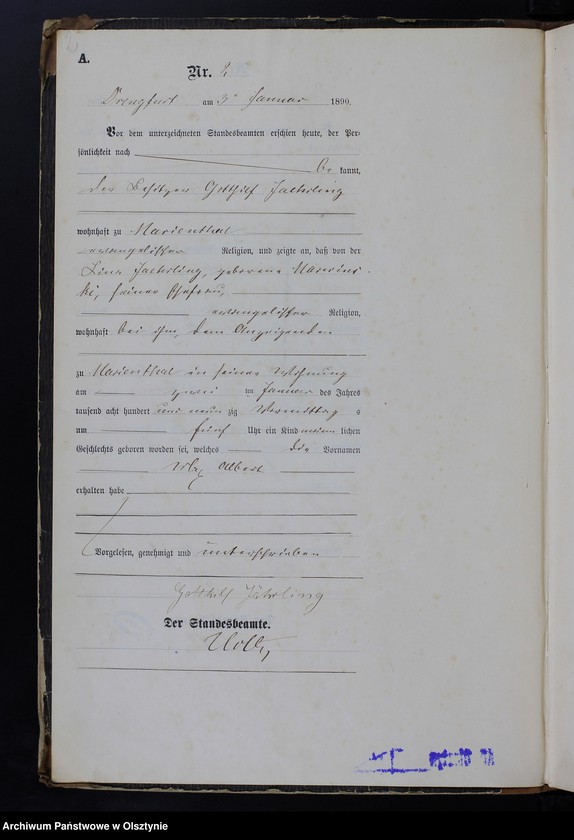 A.
Nr. 2
Drengfurt am 3ten Januar 1890.
Vor dem unterzeichneten Standesbeamten erschien heute, der Per-
sönlichkeit nach
be kannt,
der Besitzer Gotthilf Jaehrling
wohnhaft zu Marienthal
evangelischer Religion, und zeigte an, daß von der
Jaehrling, geborene
ki, seiner Ehefrau,
evangelischer Religion,
wohnhaft bei ihm, dem Anzeigenden
zu Marienthal in seiner Wohnung
am zwei im Januar des Jahres
tausend acht hundert und neun zig Vormittag s
um fünf Uhr ein Kind männ lichen
Geschlechts geboren worden sei, welches die Vornamen
Max Albert
erhalten habe
Vorgelesen, genehmigt und unterschrieben
Gotthilf Jährling
Der Standesbeamte.
Archiwum Państwowe w Olsztynie